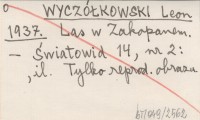 0 WYCZÓŁKOWSKI Leon
1937. Las w Zakopanem.
– Światowid 14, nr 2:
, il. Tylko reprod. obrazu
67/049/2562